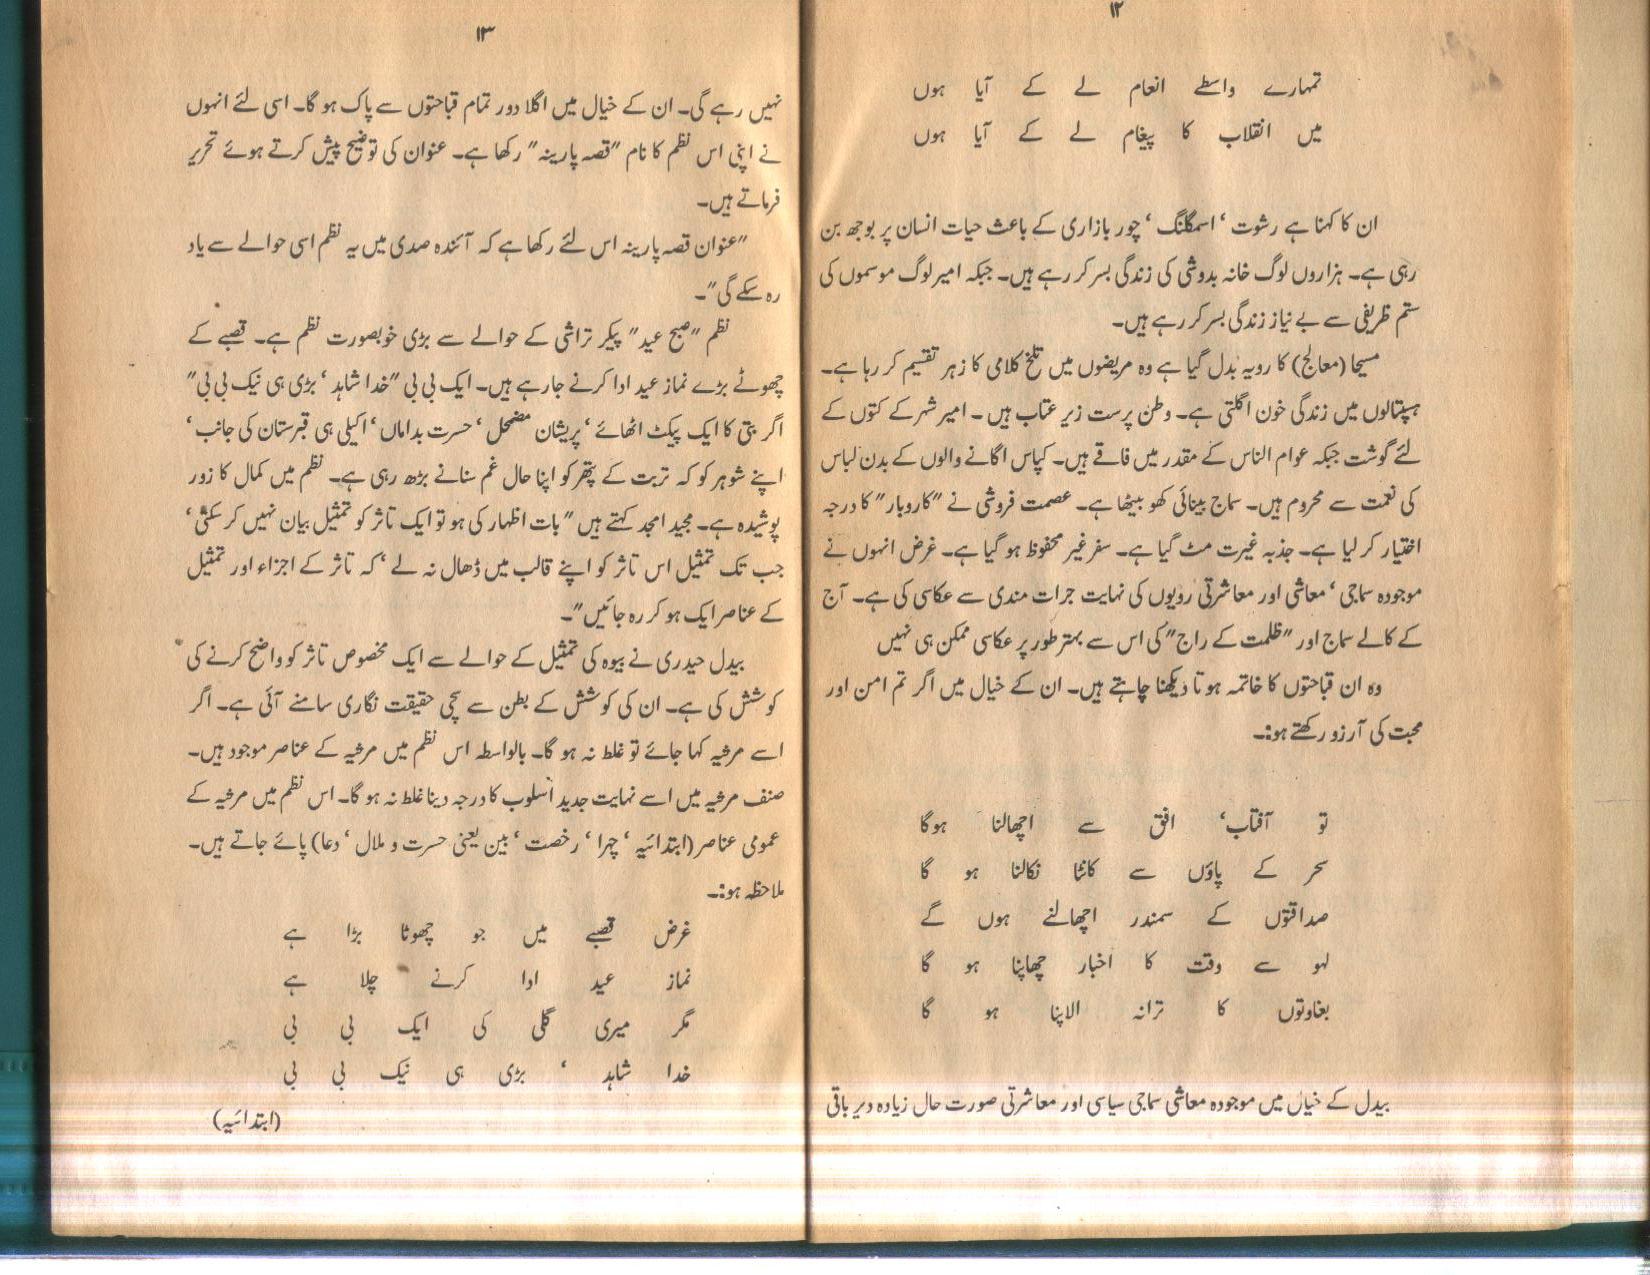 ۱۲
تمہارے واسطے انعام لے کے آیا ہوں
میں انقلاب کا پیغام لے کے آیا ہوں
ان کا کہنا ہے رشوت ‘ اسمگلنگ ‘ چور بازاری کے باعث حیات انسان پر بوجھ بن
رہی ہے۔ ہزاروں لوگ خانہ بدوشی کی زندگی بسر کر رہے ہیں۔ جبکہ امیر لوگ موسموں کی
ستم ظریفی سے بے نیاز زندگی بسر کر رہے ہیں۔
مسیحا (معالج) کا رویہ بدل گیا ہے وہ مریضوں میں تلخ کلامی کا زہر تقسیم کر رہا ہے۔
ہسپتالوں میں زندگی خون اگلتی ہے۔ وطن پرست زیر عتاب ہیں ۔ امیر شہر کے کتوں کے
لئے گوشت جبکہ عوام الناس کے مقدر میں فاقے ہیں۔ کپاس اگانے والوں کے بدن لباس
کی نعمت سے محروم ہیں۔ سماج بینائی کھو بیٹھا ہے۔ عصمت فروشی نے ”کاروبار” کا درجہ
اختیار کر لیا ہے۔ جذبہ غیرت مٹ گیا ہے۔ سفر غیر محفوظ ہو گیا ہے۔ غرض انہوں نے
موجودہ سماجی ‘ معاشی اور معاشرتی رویوں کی نہایت جرات مندی سے عکاسی کی ہے۔ آج
کے کالے سماج اور ”ظلمت کے راج” کی اس سے بہتر طور پر عکاسی ممکن ہی نہیں
وہ ان قباحتوں کا خاتمہ ہوتا دیکھنا چاہتے ہیں۔ ان کے خیال میں اگر تم امن اور
محبت کی آرزو رکھتے ہو:۔
تو آفتاب‘ افق سے اچھالنا ہوگا
سحر کے پاؤں سے کانٹا نکالنا ہو گا
صداقتوں کے سمندر اچھالنے ہوں گے
لہو سے وقت کا اخبار چھاپنا ہو گا
بغاوتوں کا ترانہ الاپنا ہو گا
بیدل کے خیال میں موجودہ معاشی سماجی سیاسی اور معاشرتی صورت حال زیادہ دیر باقی
۱۳
نہیں رہے گی۔ ان کے خیال میں اگلا دور تمام قباحتوں سے پاک ہو گا۔ اسی لئے انہوں
نے اپنی اس نظم کا نام ”قصہ پارینہ” رکھا ہے۔ عنوان کی توضیح پیش کرتے ہوئے تحریر
فرماتے ہیں۔
”عنوان قصہ پارینہ اس لئے رکھا ہے کہ آئندہ صدی میں یہ نظم اسی حوالے سے یاد
رہ سکے گی”۔
نظم ”صبح عید” پیکر تراشی کے حوالے سے بڑی خوبصورت نظم ہے۔ قصبے کے
چھوٹے بڑے نماز عید ادا کرنے جا رہے ہیں۔ ایک بی بی ”خدا شاہد ‘ بڑی ہی نیک بی بی”
اگر بتی کا ایک پیکٹ اٹھائے ‘ پریشان مضمحل ‘ حسرت بداماں ‘ اکیلی ہی قبرستان کی جانب ‘
اپنے شوہر کو کہ تربت کے پتھر کو اپنا حال غم سنانے بڑھ رہی ہے۔ نظم میں کمال کا زور
پوشیدہ ہے۔ مجید امجد کہتے ہیں ”بات اظہار کی ہو تو ایک تاثر کو تمثیل بیان نہیں کر سکتی ‘
جب تک تمثیل اس تاثر کو اپنے قالب میں ڈھال نہ لے ‘ کہ تاثر کے اجزاء اور تمثیل
کے عناصر ایک ہو کر رہ جائیں”۔
بیدل حیدری نے بیوہ کی تمثیل کے حوالے سے ایک مخصوص تاثر کو واضح کرنے کی
کوشش کی ہے۔ ان کی کوشش کے بطن سے سچی حقیقت نگاری سامنے آئی ہے۔ اگر
اسے مرثیہ کہا جائے تو غلط نہ ہو گا۔ بالواسطہ اس نظم میں مرثیہ کے عناصر موجود ہیں۔
صنف مرثیہ میں اسے نہایت جدید اسلوب کا درجہ دینا غلط نہ ہو گا۔ اس نظم میں مرثیہ کے
عمومی عناصر (ابتدائیہ ‘ چہرا ‘ رخصت ‘ بین یعنی حسرت و ملال ‘ دعا) پائے جاتے ہیں۔
ملاحظہ ہو:۔
غرض قصبے میں جو چھوٹا بڑا ہے
نماز عید ادا کرنے چلا ہے
مگر میری گلی کی ایک بی بی
خدا شاہد ‘ بڑی ہی نیک بی بی
(ابتدائیہ)